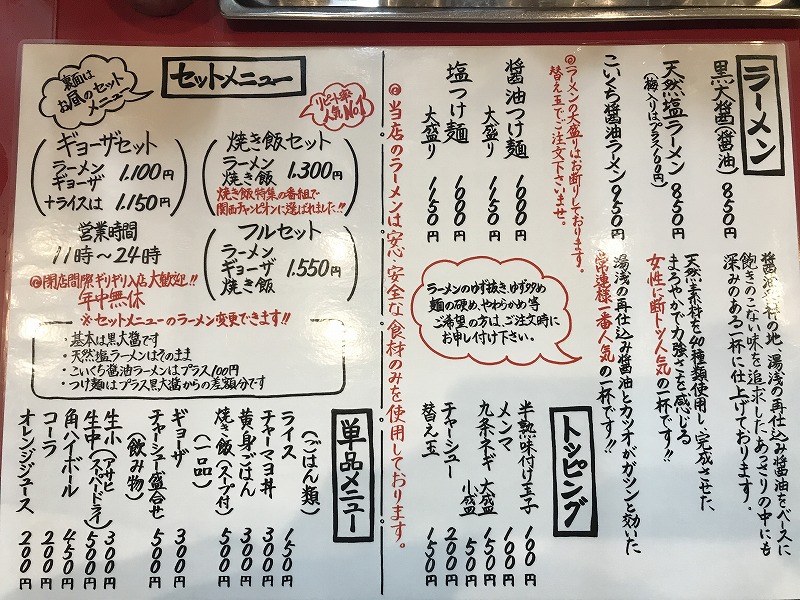 ラーメン
黒大醤(醤油) 850円
醤油発祥の地 湯浅の再仕込み醤油をベースに
飽きのこない味を追求したあっさりの中にも
深みのある一杯に仕上げております。
天然塩ラーメン 850円
(梅入りはプラス100円)
天然素材を40種類使用し、完成させた、
まろやかで力強さを感じる
女性に断トツ人気の一杯です!!
こいくち醤油ラーメン 950円
湯浅の再仕込み醤油とカツオがガツンと効いた
常連様一番人気の一杯です!!
◎ラーメンの大盛りはお断りしております。
替え玉でご注文下さいませ。
醤油つけ麺 1000円
大盛り 1150円
塩つけ麺 1000円
大盛り 1150円
ラーメンのゆず抜き、ゆず多め
麺の硬め、やわらかめ等
ご希望の方は、ご注文時に
お申し付け下さい。
トッピング
半熟味付け玉子 100円
メンマ 100円
九条ネギ 大盛 150円
小盛 50円
チャーシュー 200円
替え玉 150円
◎当店のラーメンは安心、安全な食材のみを使用しております。
裏面は
お昼のセット
メニュー
セットメニュー
リピート率
人気No.1
焼き飯セット
ラーメン
焼き飯 1.300円
焼き飯特集の番組で
関西チャンピオンに選ばれました!!
ギョーザセット
ラーメン
ギョーザ 1.100円
+ライスは 1.150円
フルセット
ラーメン
ギョーザ
焼き飯 1.550円
営業時間
11時～24時
◎閉店間際ギリギリ入店大歓迎!!
年中無休
※セットメニューのラーメン変更できます!!
・基本は黒大醤です
・天然塩ラーメンはそのまま
・こいくち醤油ラーメンはプラス100円
・つけ麺はプラス黒大醤からの差額分です
単品メニュー
(ごはん類)
ライス 150円
チャーマヨ丼 300円
黄身ごはん 300円
焼き飯(スープ付) 500円
(一品)
ギョーザ 300円
チャーシュー盛合せ 500円
(飲み物)
生小 300円
生中(アサヒスーパードライ) 500円
角ハイボール 450円
コーラ 200円
オレンジジュース 200円